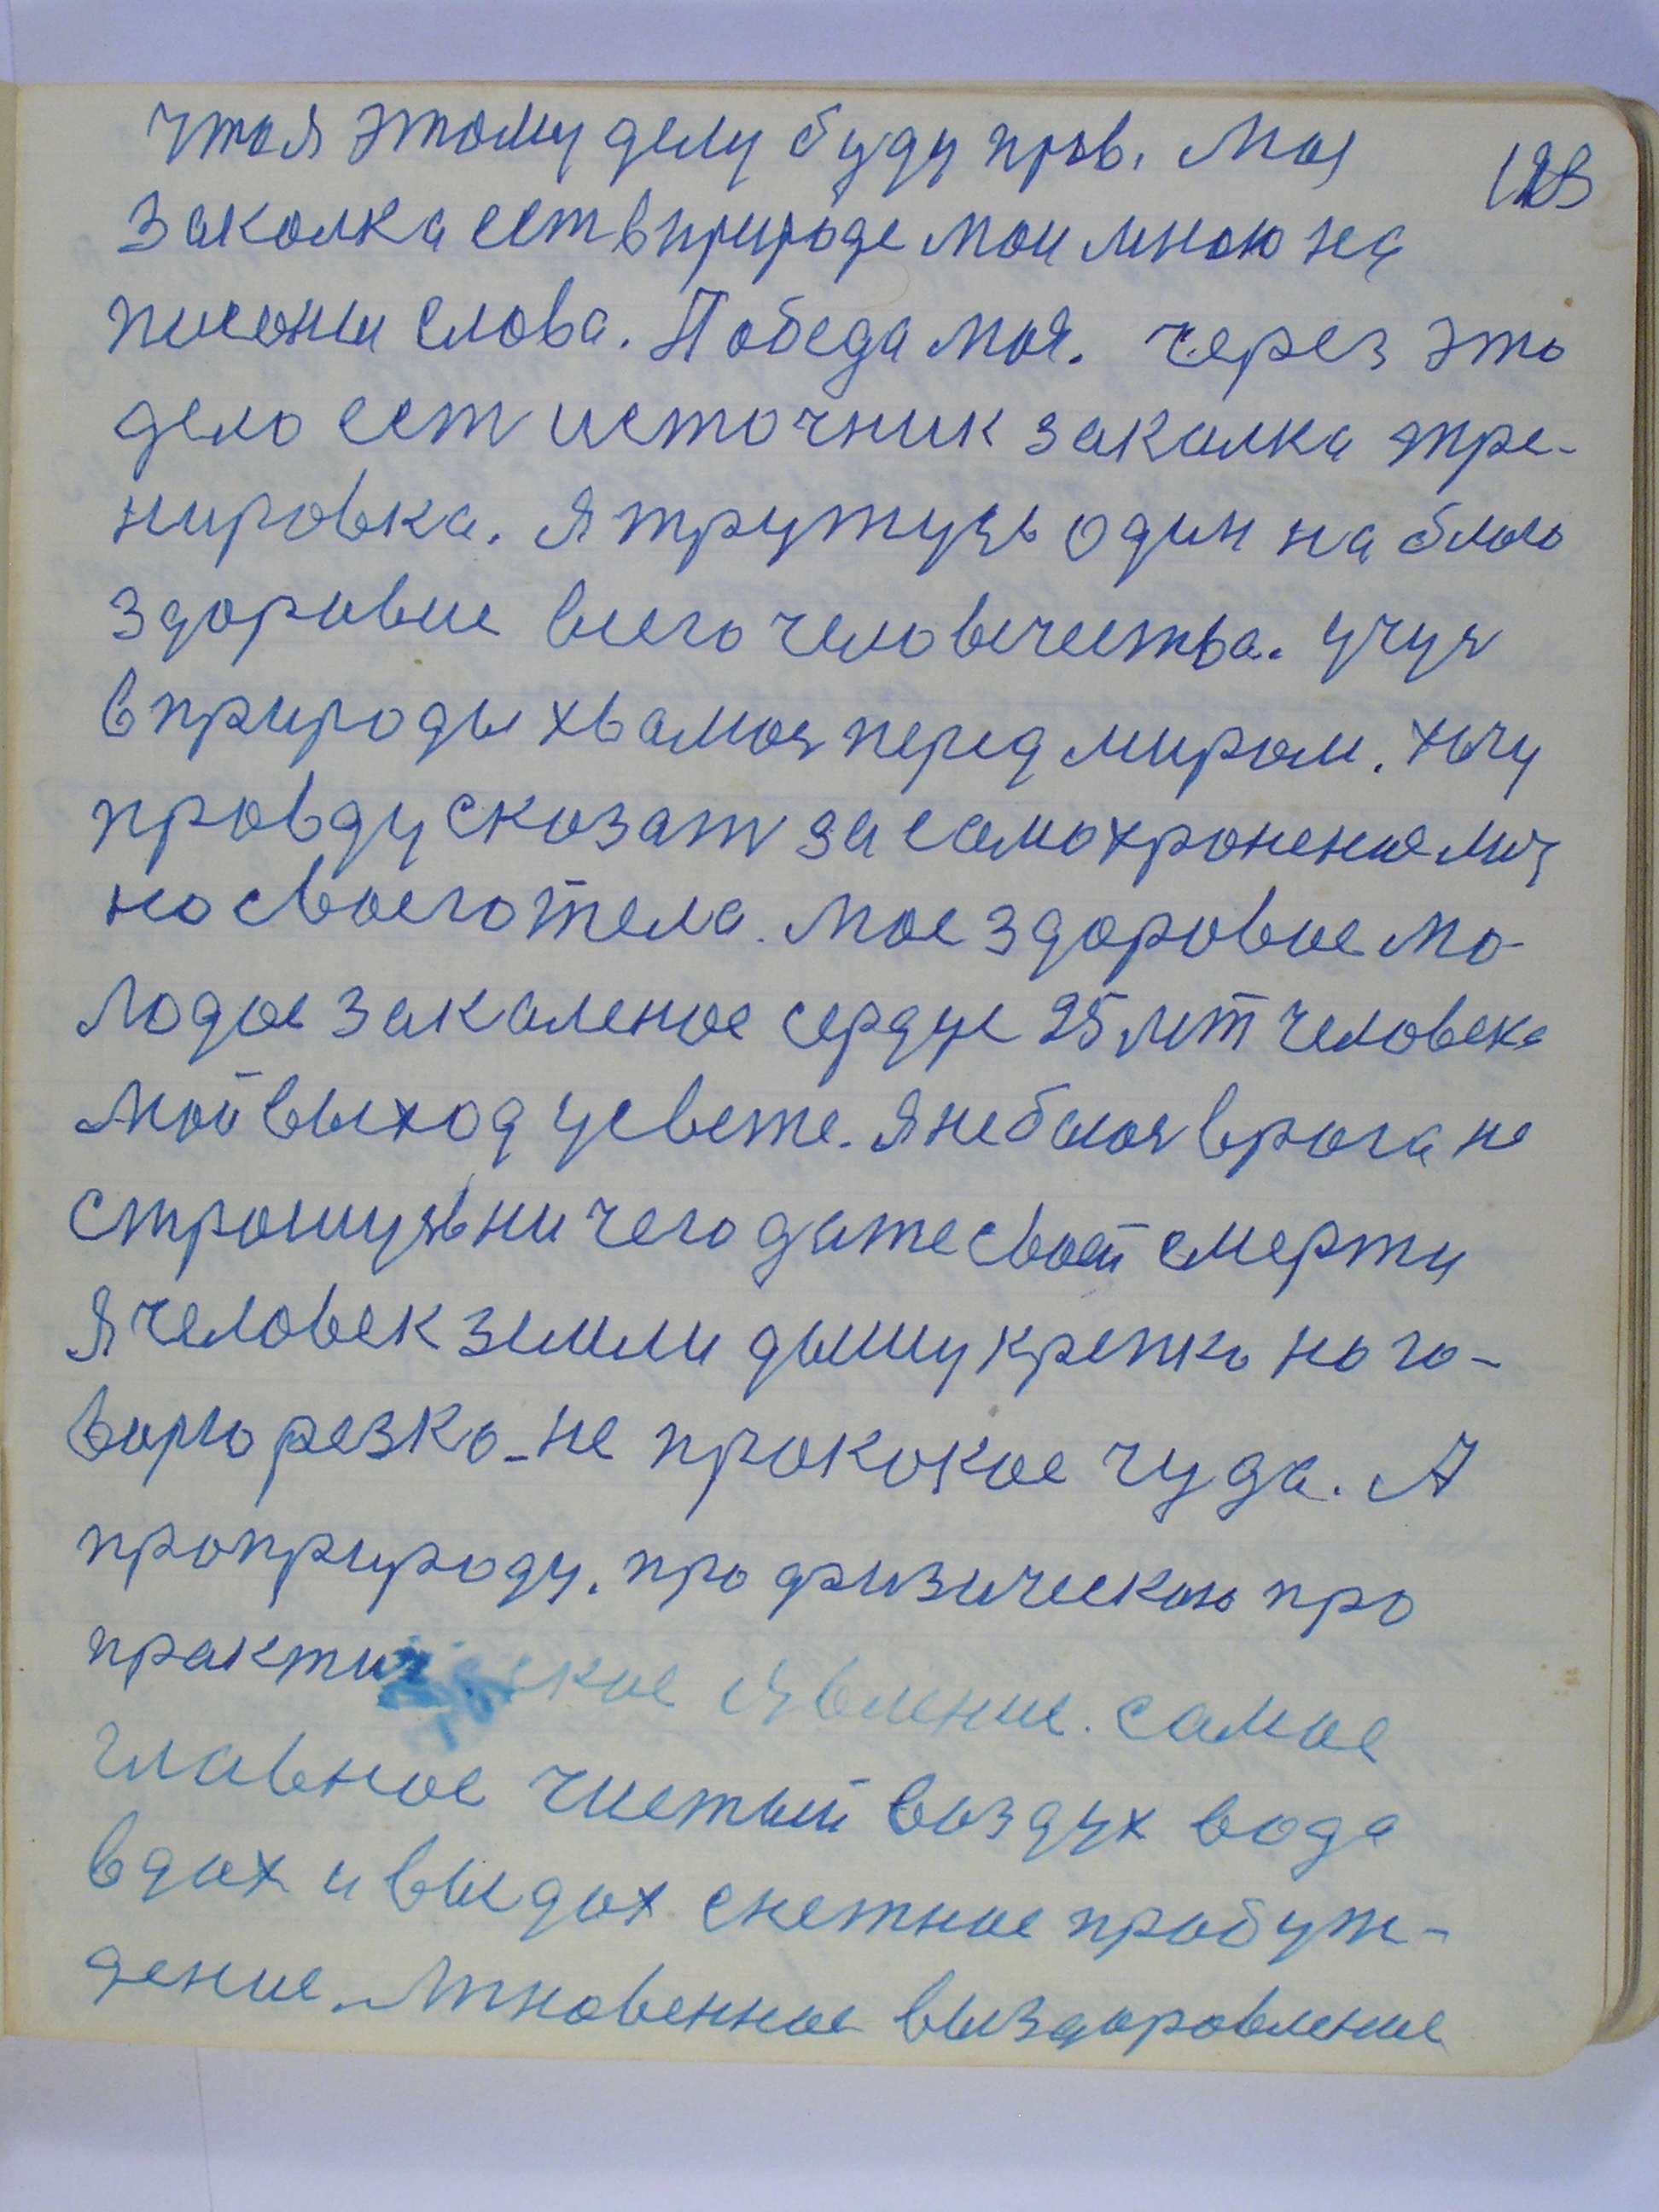 что я этому делу буду прав. Моя
123
закалка ест в природе мои мною на
писоныи слова. Победа моя. через это
дело ест источник закалка тре-
нировка. Я трутусь один на благо
здоровие всего человечества. учуя
в природы хвамоя перед миром. хочу
правду сказат за самохронение мич
но своего тела. Мое здоровое мо-
лодое закаленое сердце 25 лет человека
Мой выход у свете. Я не боюя врага не
строшусь ничего дате своей смерти
Я человек земли дышу крепко но го-
ворю резко не прококое чуда. А
проприроду. про физическою про
практическое явление. самое
главное чистый воздух вода
вдох и выдох снетное пробуж-
дение. Мгновенное выздоровление